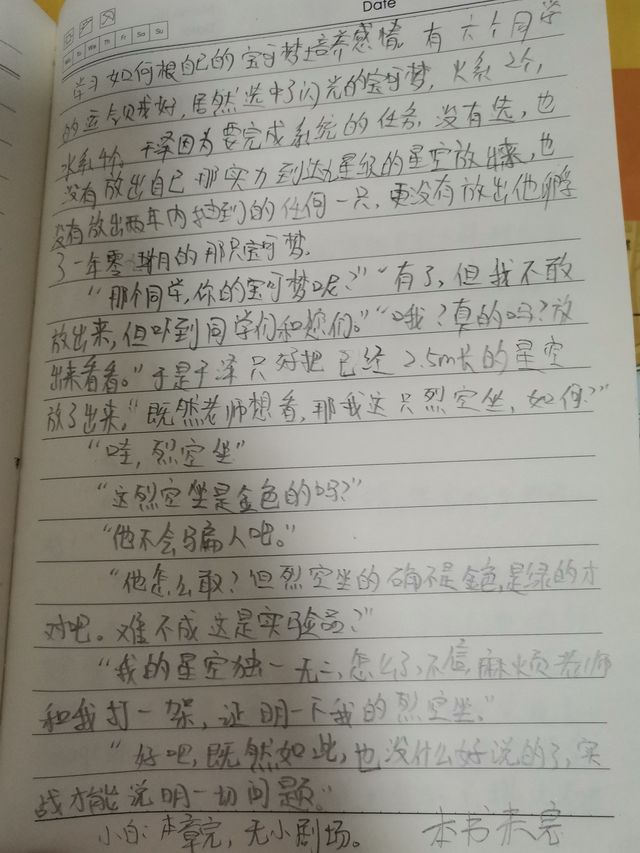 Date
Mo Tu We Th Fr Sa Su
学习如何根自己的宝可梦培养感情。有六个同学
的运气贼好,居然选中了闪光的宝可梦,火系2个,
水系4个。于泽因为要完成系统的任务,没有选,也
没有放出自己那实力到达九星级的星空放出来,也
没有放出两年内抽到的任何一只,更没有放出他孵
了一年零 月的那只宝可梦。
“那个同学,你的宝可梦呢?”“有了,但我不敢
放出来,但吓到同学们和您们。”“哦?真的吗?放
出来看看。”于是于泽只好把已经2.5m长的星空
放了出来,“既然老师想看,那我这只烈空坐,如何?”
“哇,烈空坐”
“这烈空坐是金色的吗?”
“他不会骗人吧。”
“他怎么敢?但烈空坐的确不是金色,是绿的才
对吧。难不成这是实验品?”
“我的星空独一无二,怎么了,不信,麻烦老师
和我打一架,证明一下我的烈空坐。”
“好吧,既然如此,也没什么好说的了,实
战才能说明一切问题。”
小白:本章完,无小剧场。 本书未完